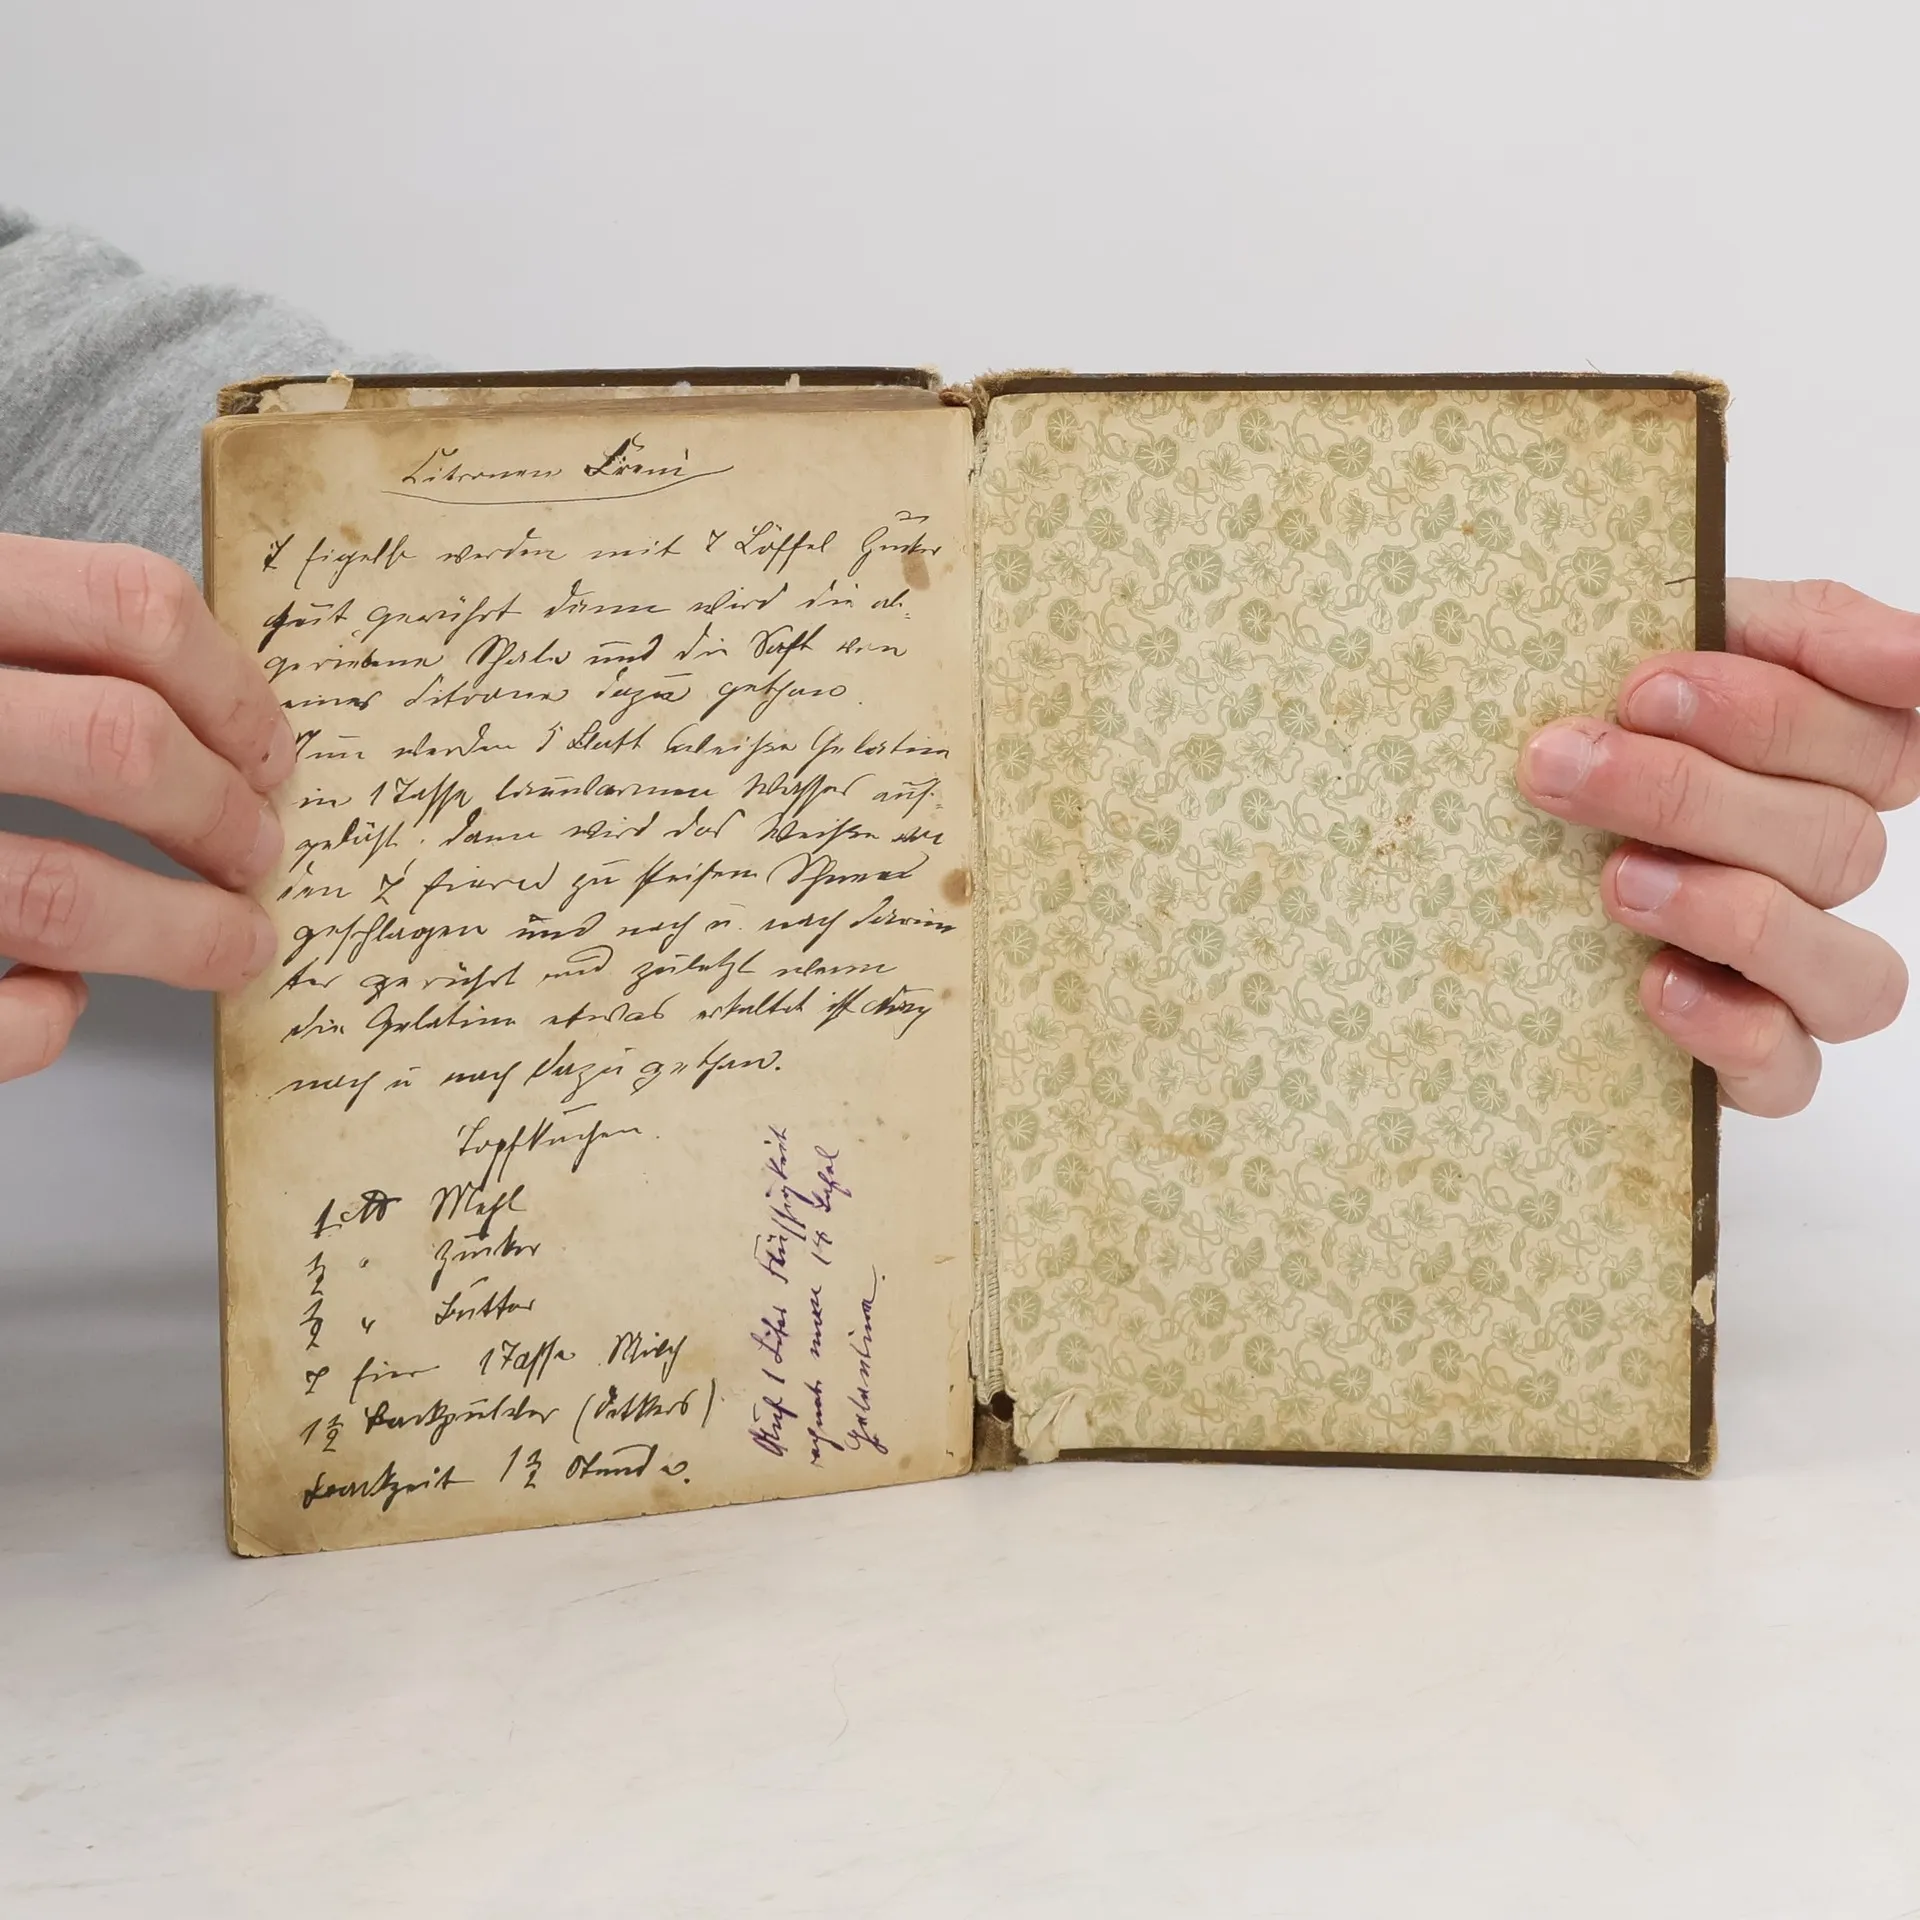 Citronen Crem
7 Eigelbe werden mit 7 Löffel Zucker
gut gerührt dann wird die ab-
geriebene Schale und die Saft von
einer Citrone dazu gethan.
Nun werden 5 Blatt weiße Gelatine
in 1 Tasse lauwarmen Wasser auf-
gelöst. dann wird das Weiße von
den 7 Eiern zu steifen Schnee
geschlagen und nach u. nach darun
ter gerührt und zuletzt wenn
die Gelatine etwas erkaltet ist
nach u nach dazu gethan.
Topfkuchen.
1 ℔ Mehl
1/2 " Zucker
1/2 " Butter
7 Eier 1 Tasse Milch
1 1/2 Backpulver (Oetkers)
Backzeit 1 1/2 Stunde.
Auf 1 Liter Flüssigkeit
rechnet man 18 Tafel
Gelantine.